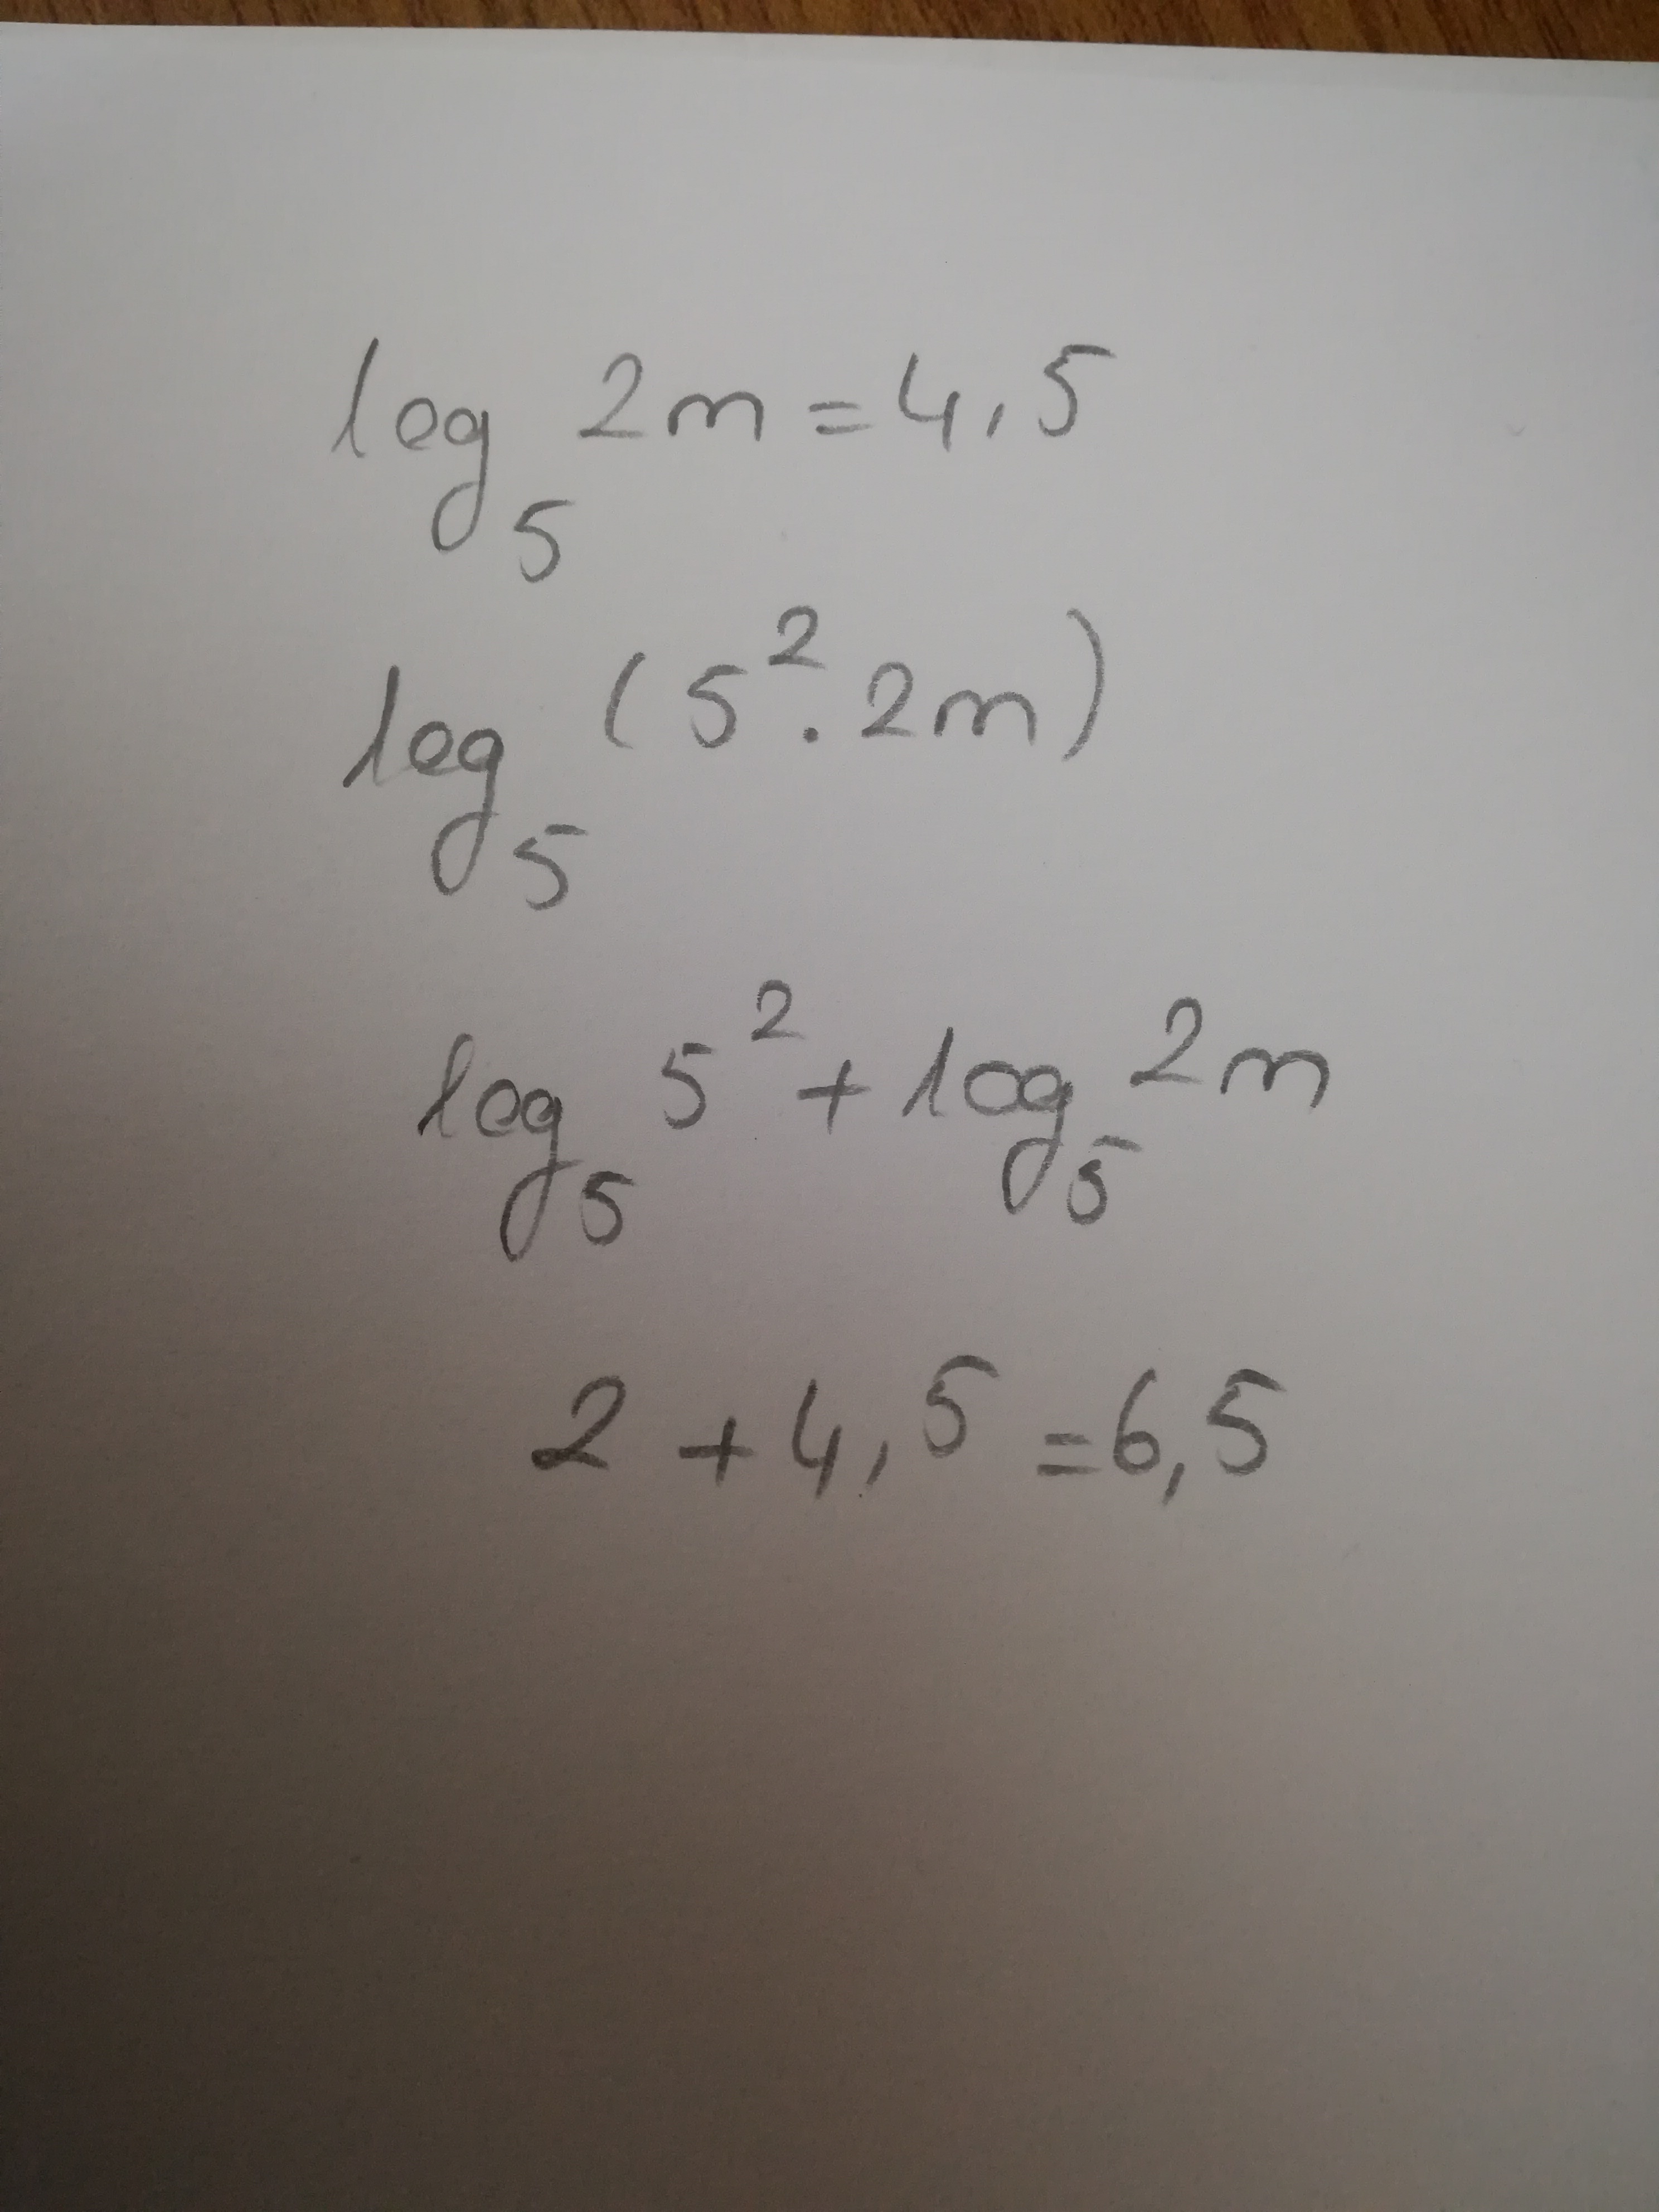 log₅ 2m = 4,5
log₅ (5² . 2m)
log₅ 5² + log₅ 2m
2 + 4,5 = 6,5